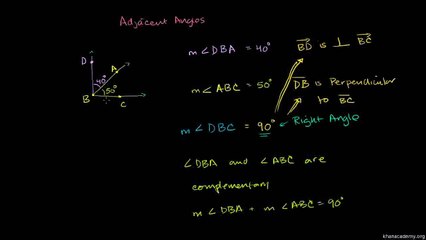 Adjacent Angles
D
A
40°
50°
B
C
m∠DBA = 40°
m∠ABC = 50°
m∠DBC = 90° ← Right Angle
BD is ⊥ BC
DB is Perpendicular
to BC
∠DBA and ∠ABC are
complementary
m∠DBA + m∠ABC = 90°
khanacademy.org